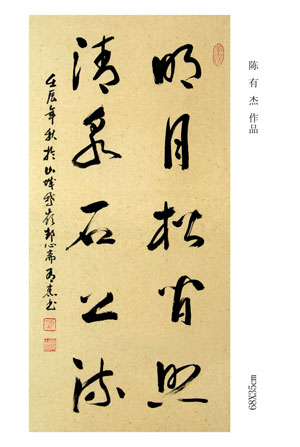 陈有杰 作品
明月松间照
清泉石上流
壬辰年秋於山城心斋有杰书
68X35cm